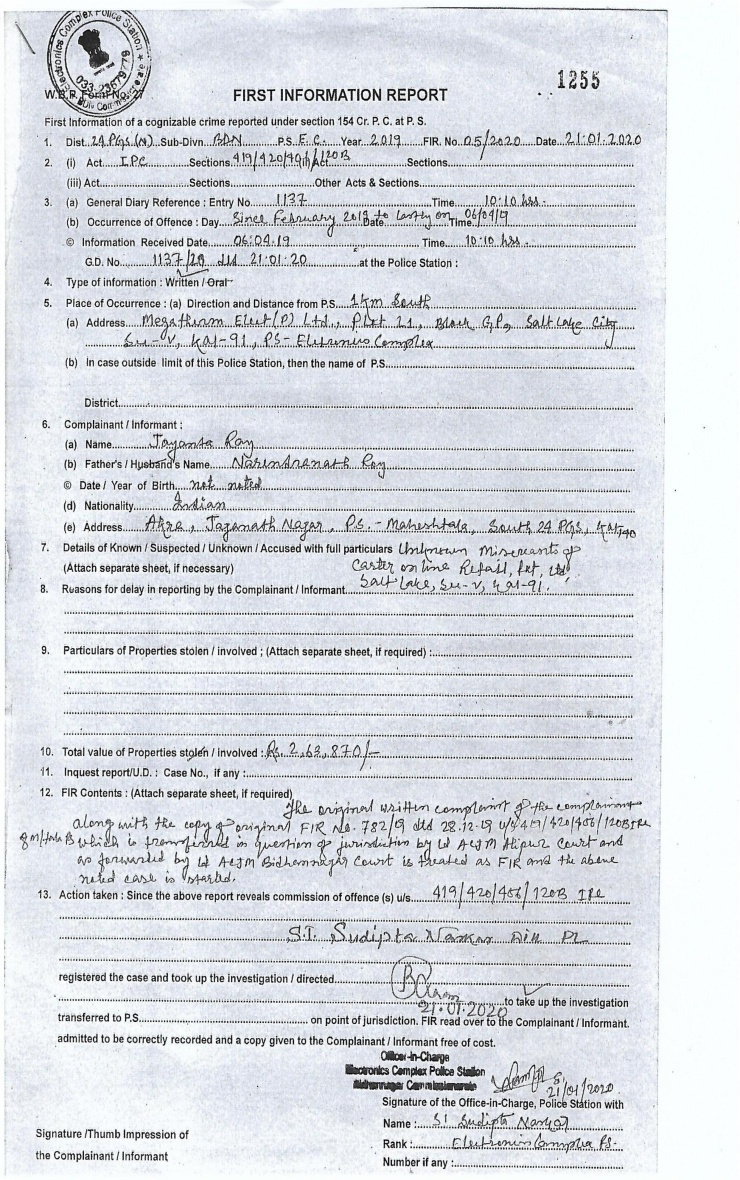 Electronics Complex Police Station
033-23679779
W.B.P. Form No. 27
1255
FIRST INFORMATION REPORT
First Information of a cognizable crime reported under section 154 Cr. P. C. at P. S.
1. Dist. 24 PGS (N) Sub-Divn. BDN P.S. E.C. Year 2019 FIR. No. 05/2020 Date 21.01.2020
2. (i) Act IPC Sections 419/420/406/120B Sections
(iii) Act Sections Other Acts & Sections
3. (a) General Diary Reference : Entry No. 1137 Time 10:10 hrs.
(b) Occurrence of Offence : Day Since February 2019 Date to lastly on Time 06/04/19
© Information Received Date 06.04.19 Time 10:10 hrs.
G.D. No. 1137/20 dtd 21.01.20 at the Police Station :
4. Type of information : Written / Oral
5. Place of Occurrence : (a) Direction and Distance from P.S. 1 km South
(a) Address Megatherm Elect (P) Ltd., Plot L1, Block GP, Salt Lake City
Sec-V, Kol-91, PS- Eletronics Complex
(b) In case outside limit of this Police Station, then the name of P.S.
District
6. Complainant / Informant :
(a) Name Jayanta Roy
(b) Father's / Husband's Name Narendranath Roy
© Date / Year of Birth not noted
(d) Nationality Indian
(e) Address Akra, Jaganath Nagar, P.S. - Maheshtala, South 24 PGS, Kol-140
7. Details of Known / Suspected / Unknown / Accused with full particulars Unknown Miscreants of
(Attach separate sheet, if necessary) Carter online Retail, Pvt, Ltd
8. Reasons for delay in reporting by the Complainant / Informant Salt Lake, Sec-V, Kol-91.
9. Particulars of Properties stolen / involved ; (Attach separate sheet, if required) :
10. Total value of Properties stolen / involved : Rs. 2,63,870/-
11. Inquest report/U.D. : Case No., if any :
12. FIR Contents : (Attach separate sheet, if required)
The original written complaint of the complainant
along with the copy of original FIR No. 782/19 dtd 28.12.19 u/s 419/420/406/120B IPC
which is transferred in question of jurisdiction by Ld ACJM Alipur Court and
as forwarded by Ld ACJM Bidhannagar Court is treated as FIR and the above
noted case is started.
13. Action taken : Since the above report reveals commission of offence (s) u/s. 419/420/406/120B IPC
S.I. Sudipta Naskar
registered the case and took up the investigation / directed
21.01.2020 to take up the investigation
transferred to P.S. on point of jurisdiction. FIR read over to the Complainant / Informant.
admitted to be correctly recorded and a copy given to the Complainant / Informant free of cost.
Officer-in-Charge
Electronics Complex Police Station
Bidhannagar Commissionerate
21/01/2020
Signature of the Office-in-Charge, Police Station with
Name : SI Sudipta Naskar
Signature /Thumb Impression of
Rank : Electronics Complex PS.
the Complainant / Informant
Number if any :